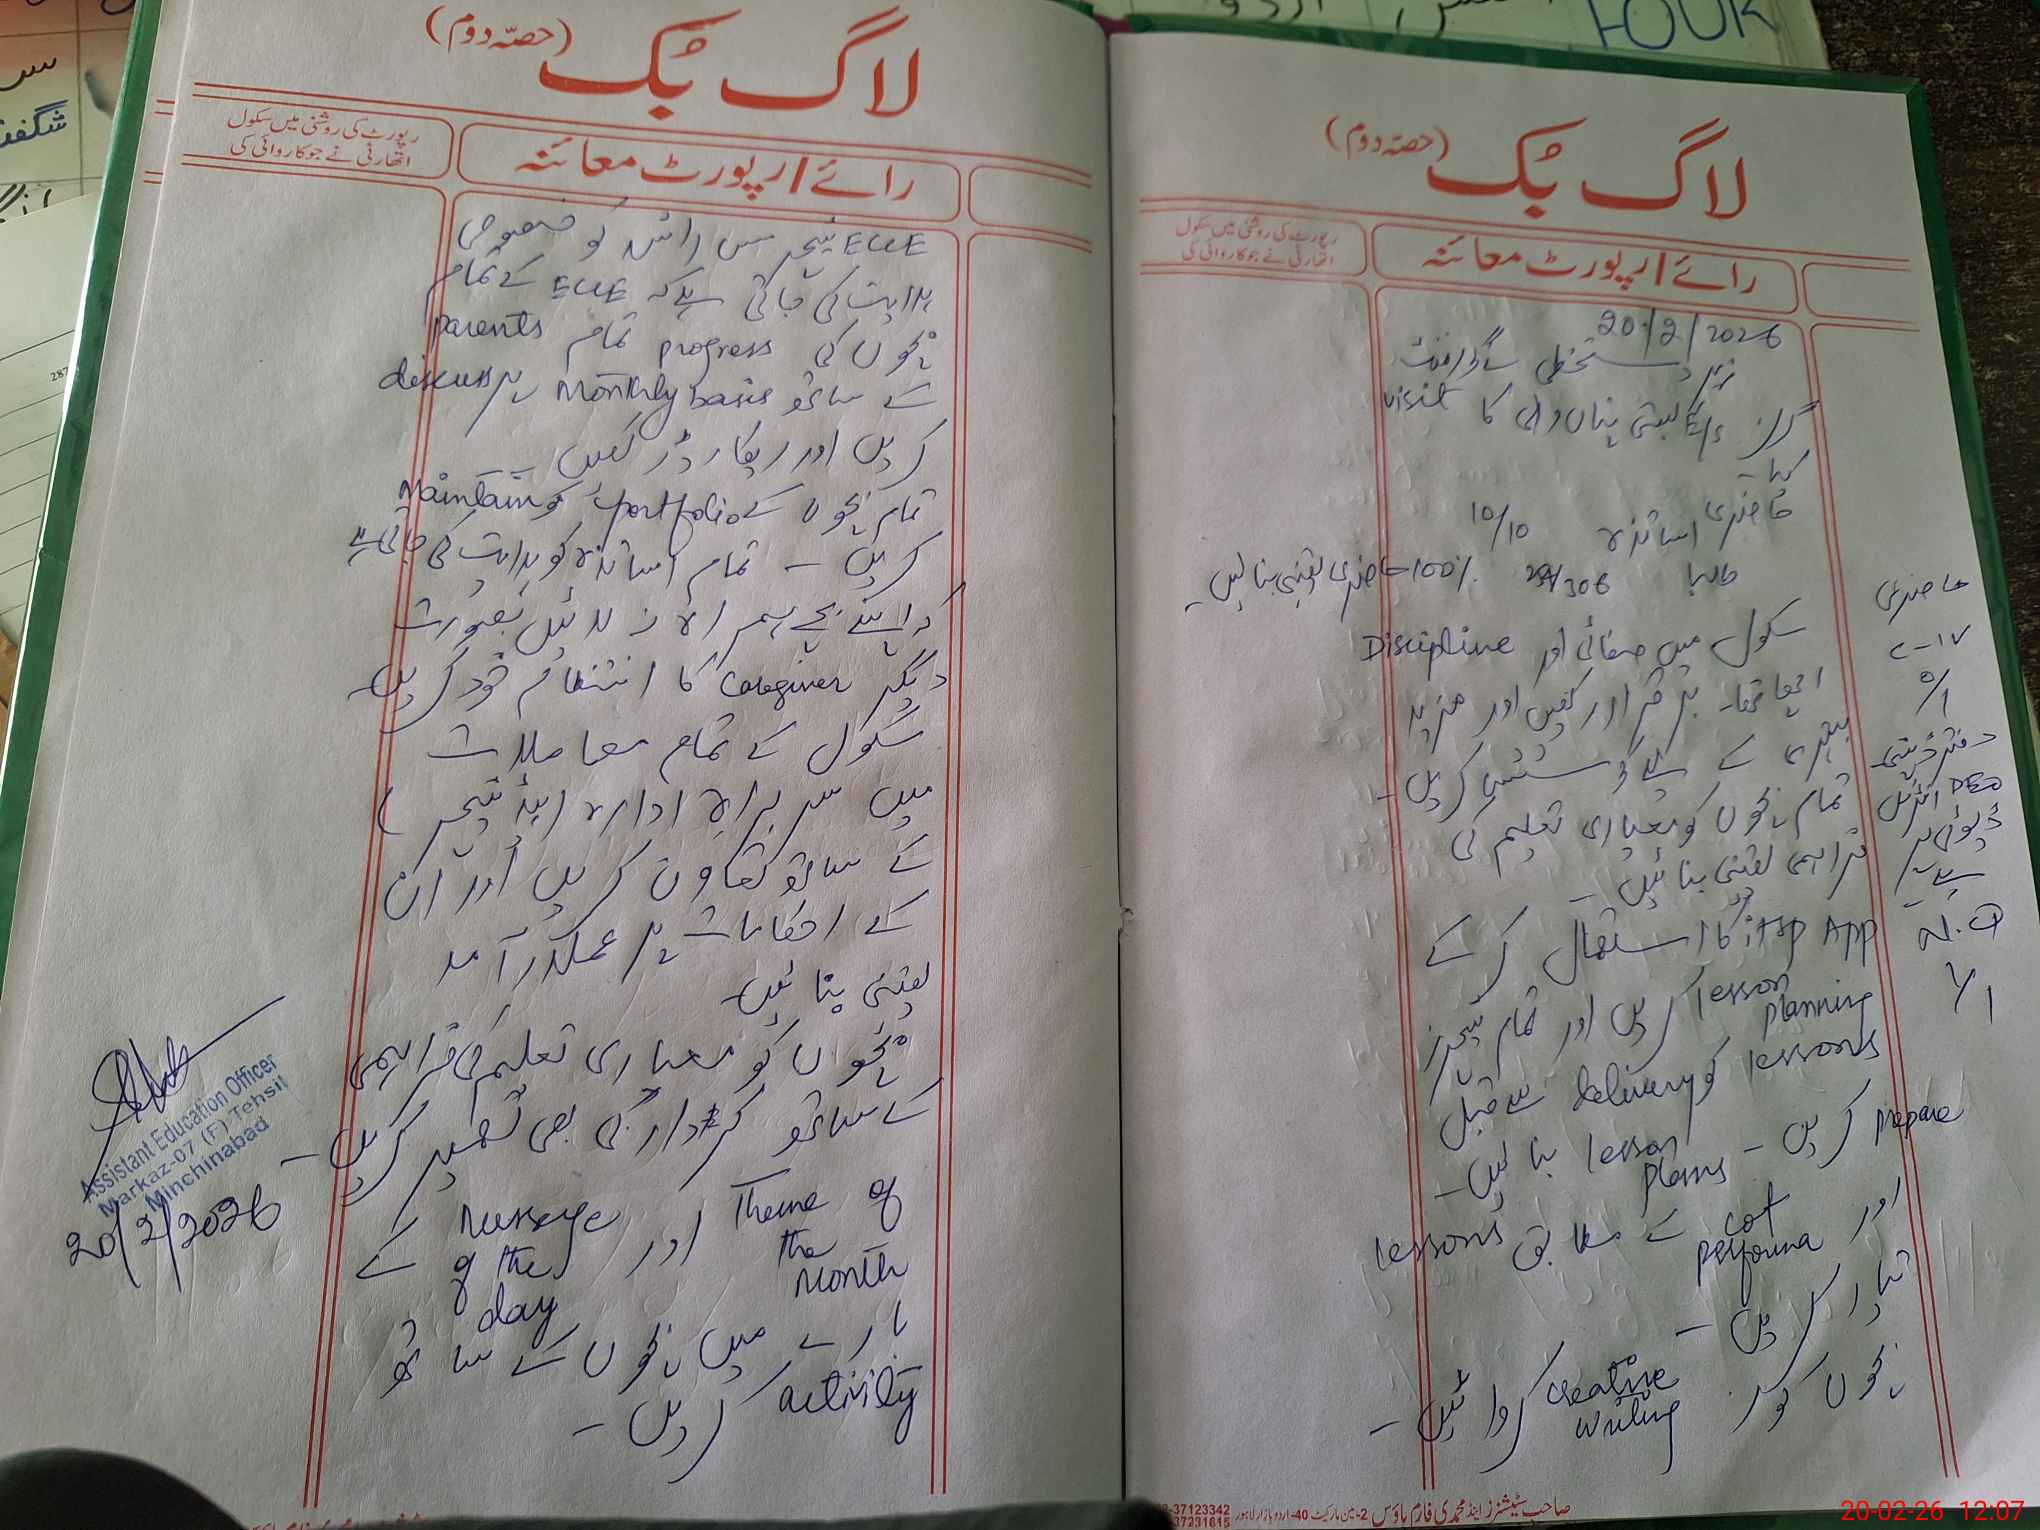 لاگ بُک (حصّہ دوم)
رائے / رپورٹ معائنہ
رپورٹ کی روشنی میں سکول
اتھارٹی نے جو کاروائی کی
20/2/2026
زیر دستخطی نے گورنمنٹ
گرلز E/S بستی پناں والی کا visit
کیا۔
حاضری اساتذہ 10/10
طلبا /306 100% حاضری یقینی بنائیں۔
سکول میں صفائی اور Discipline
اچھا تھا۔ برقرار رکھیں اور مزید
بہتری کے لیے کوشش کریں۔
تمام بچوں کو معیاری تعلیم کی
فراہمی یقینی بنائیں۔
App کا استعمال کر کے
lesson planning کریں اور تمام ٹیچرز
lessons کو delivery سے قبل
prepare کریں۔ lesson plans بنائیں۔
اور cot performa کے مطابق lessons
تیار کریں۔
بچوں کو creative writing کروائیں۔
حاضری
C-IV
0/1
دفتر ڈپٹی
DEO آفس میں
ڈیوٹی پر
ہے۔
N.Q
1/1
لاگ بُک (حصّہ دوم)
رائے / رپورٹ معائنہ
رپورٹ کی روشنی میں سکول
اتھارٹی نے جو کاروائی کی
ECCE ٹیچر مس کو خصوصی
ہدایت کی جاتی ہے کہ ECCE کے تمام
بچوں کی progress تمام parents
کے ساتھ Monthly basis پر discuss
کریں اور ریکارڈ رکھیں۔
تمام بچوں کے portfolio کو Maintain
کریں۔ تمام اساتذہ کو ہدایت کی جاتی ہے
کہ اپنے بچے ہمراہ نہ لائیں بصورت
دیگر caregiver کا انتظام خود کریں۔
سکول کے تمام معاملات
میں سربراہ ادارہ (ہیڈ ٹیچر)
کے ساتھ تعاون کریں اور ان
کے احکامات پر عملدرآمد
یقینی بنائیں۔
بچوں کو معیاری تعلیم کی فراہمی
کے ساتھ کردار کی بھی تعمیر کریں۔
Theme of the Month اور Message of the day کے
بارے میں بچوں کے ساتھ
activity کریں۔
Assistant Education Officer
Markaz-07 (F) Tehsil
Minchinabad
20/2/2026
صاحب سٹیشنرز اینڈ محمدی فارم ہاؤس 2-مین مارکیٹ 40-اردو بازار لاہور
37123342
37231615
FOUR
20-02-26 12:07